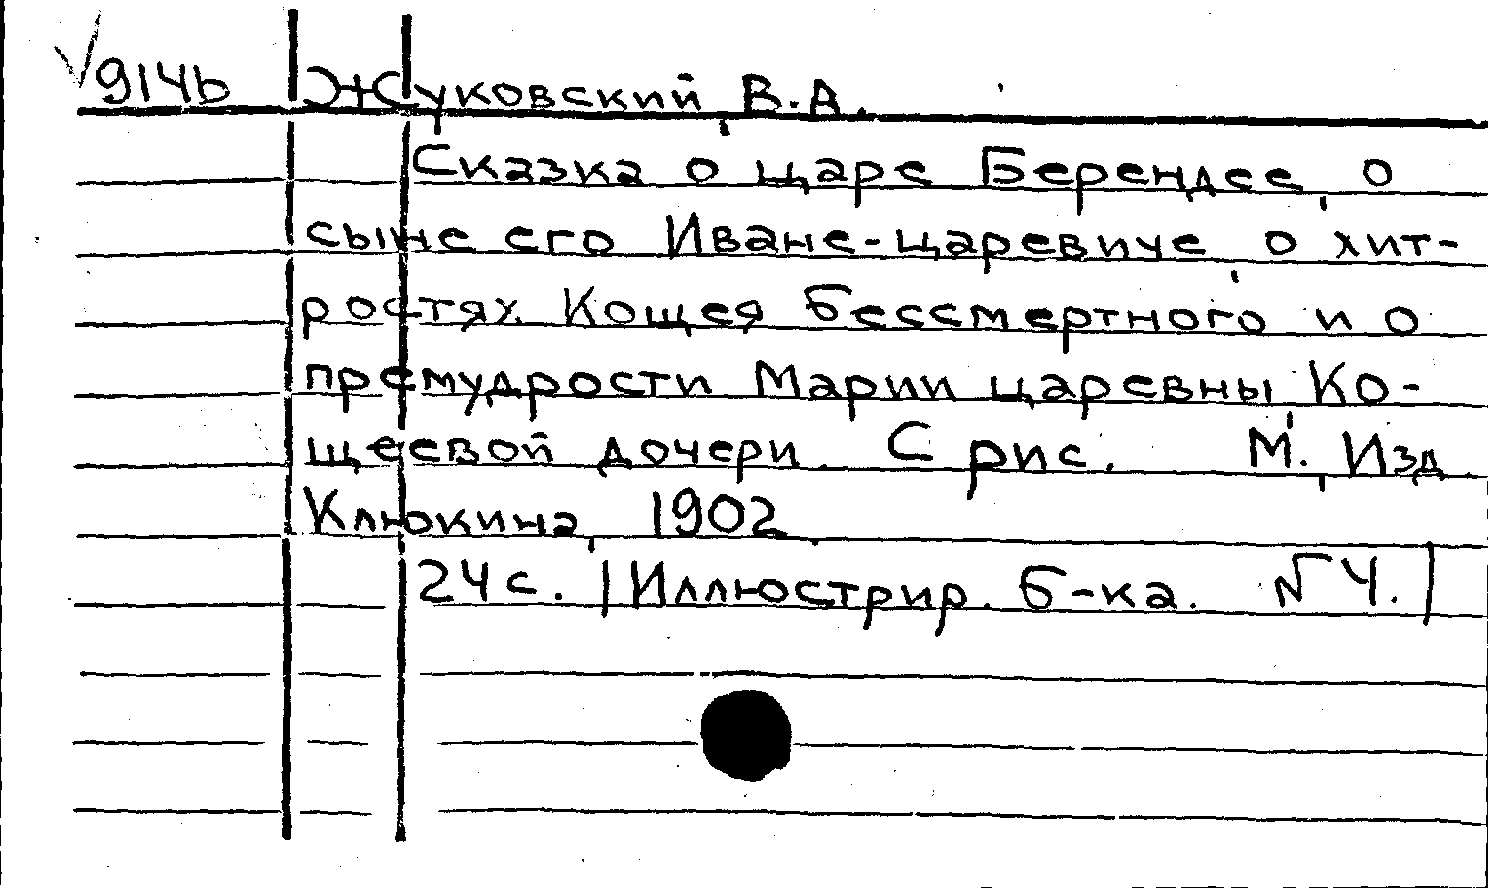 914ь Жуковский, В.А.
Сказка о царе Берендее, о
сыне его Иване-царевиче, о хит-
ростях Кощея бессмертного и о
премудрости Марии царевны, Ко-
щеевой дочери. С рис. М., Изд.
Клюкина, 1902.
24с. |Иллюстрир. б-ка. № 4.|